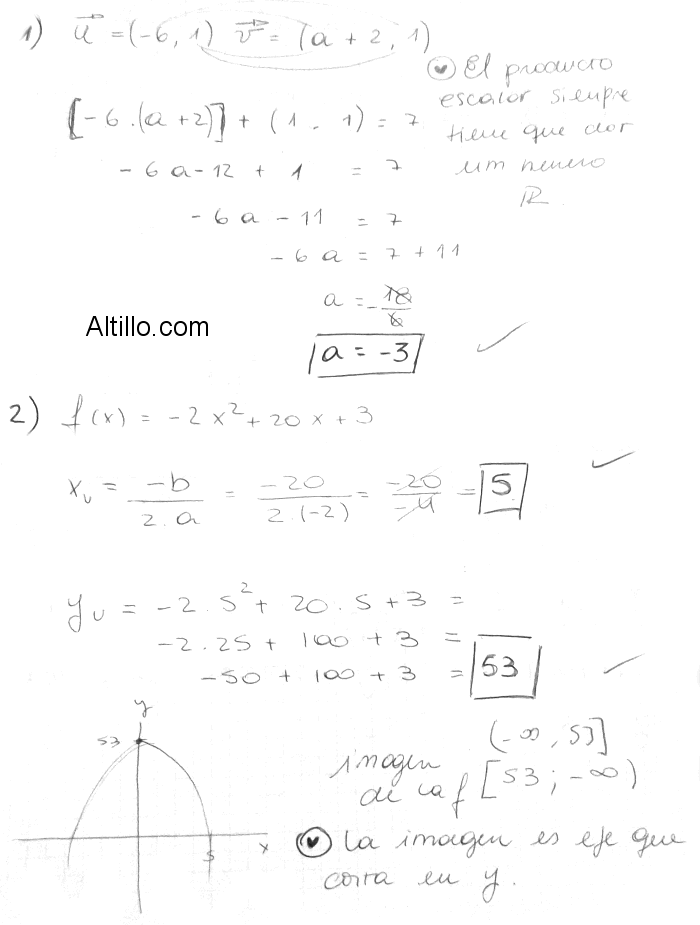 1) u⃗ = (-6, 1) v⃗ = (a + 2, 1)
El producto
escalar siempre
tiene que dar
um numero
ℝ.
[-6 . (a + 2)] + (1 . 1) = 7
-6a - 12 + 1 = 7
-6a - 11 = 7
-6a = 7 + 11
a = -18/6
a = -3 ✓
Altillo.com
2) f(x) = -2x² + 20x + 3
xᵥ = -b/2.a = -20/2.(-2) = -20/-4 = 5 ✓
yᵥ = -2.5² + 20.5 + 3 =
-2.25 + 100 + 3 =
-50 + 100 + 3 = 53 ✓
y
53
5
x
imagen
de la f
(-∞, 53]
[53; -∞)
La imagen es eje que
corta en y.